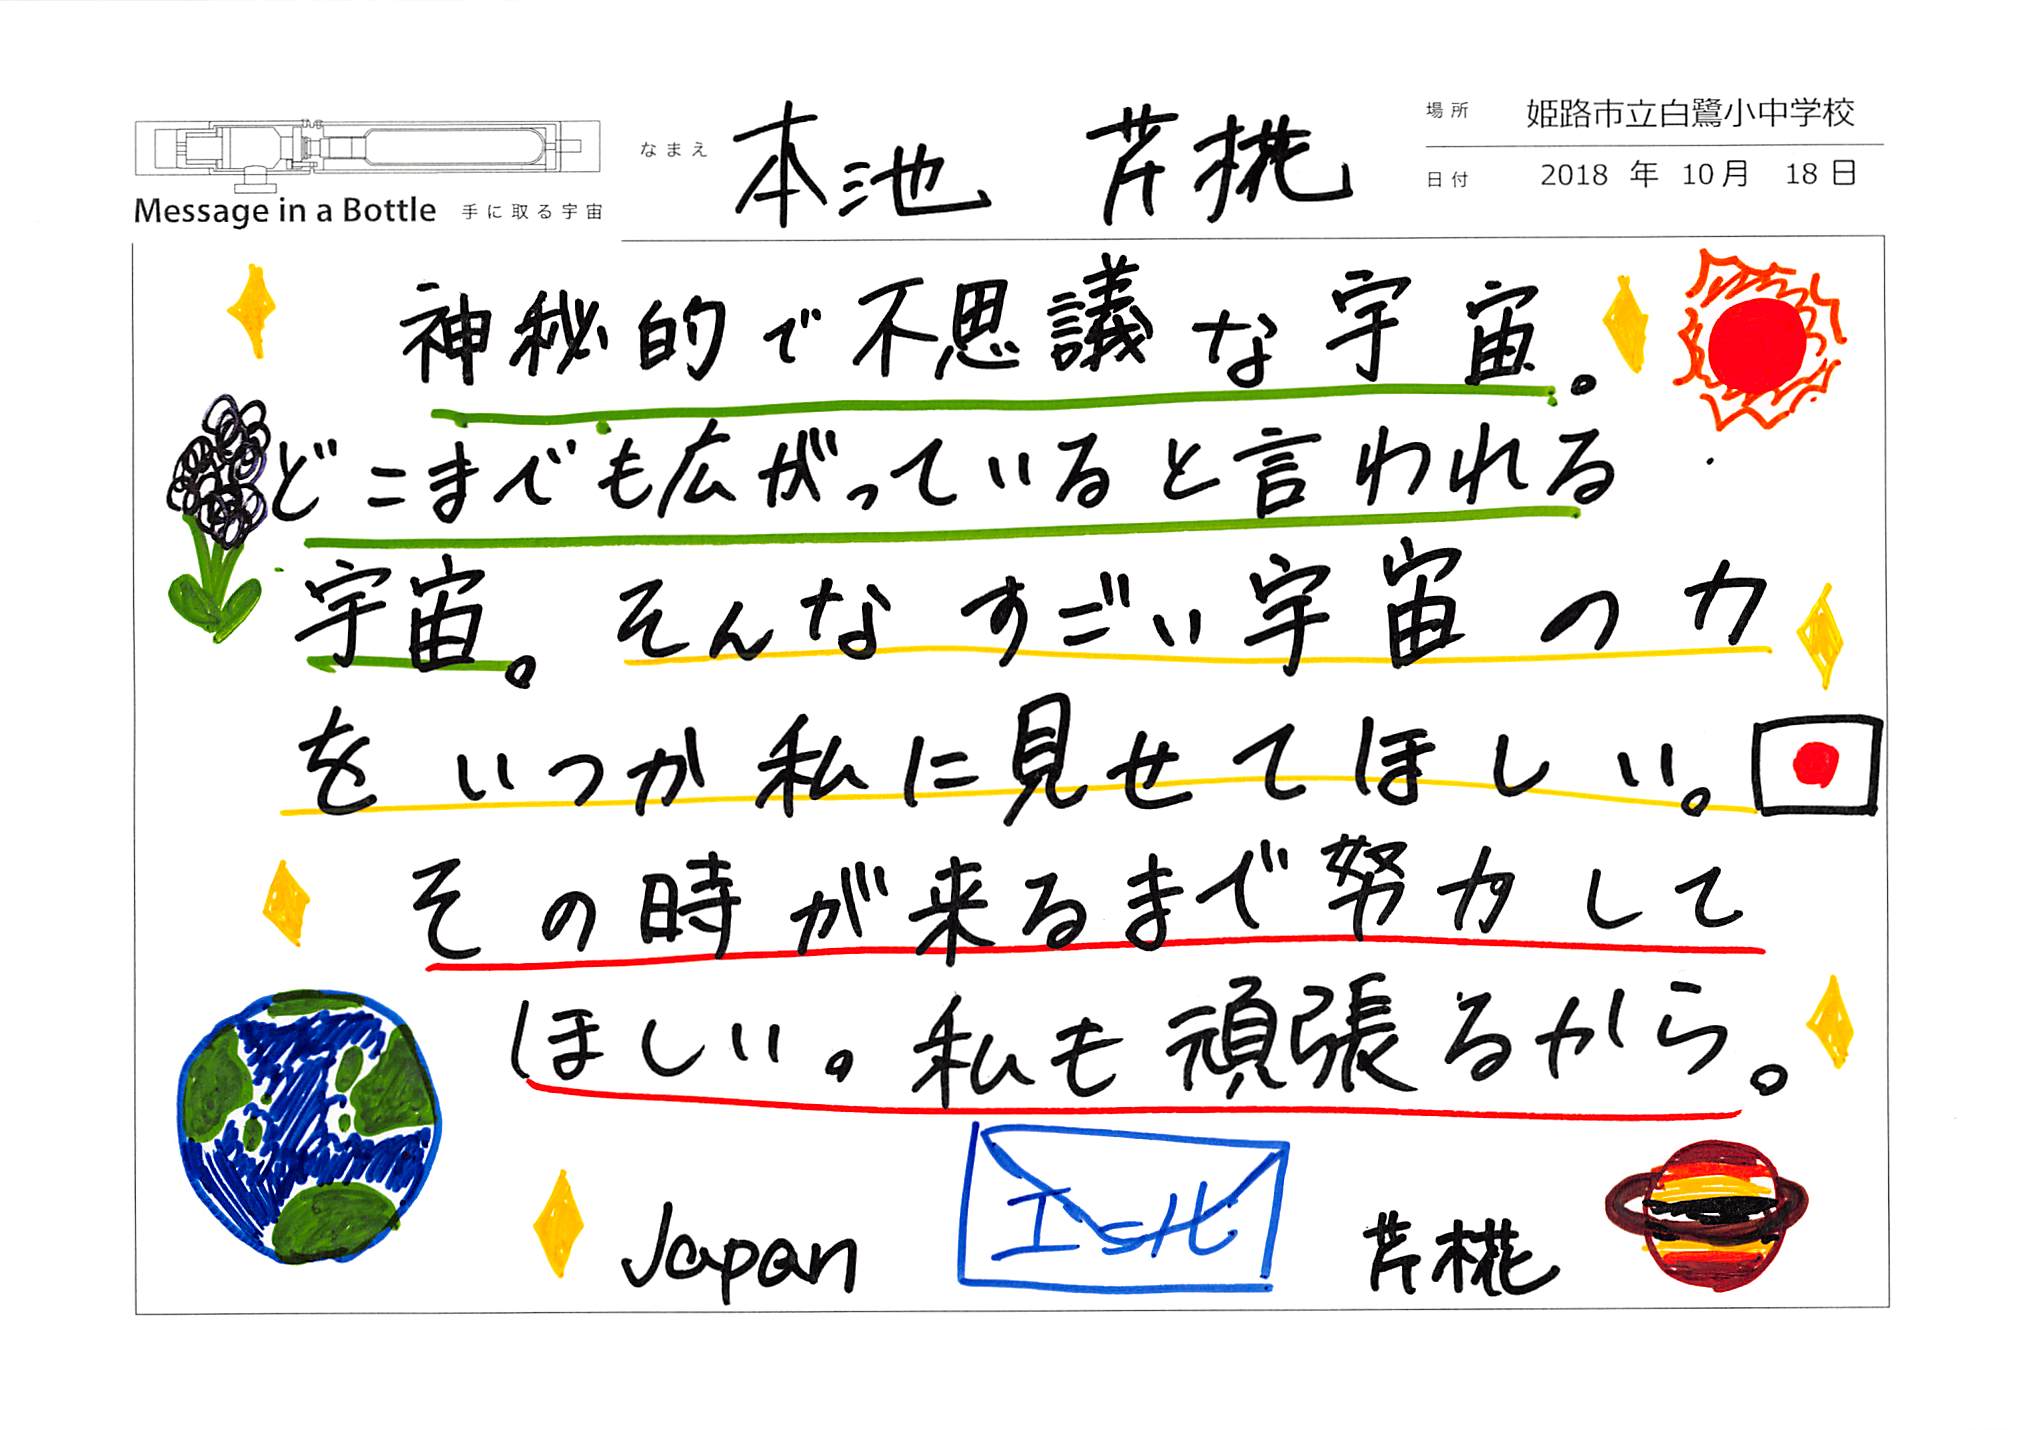 Message in a Bottle 手に取る宇宙
なまえ 本池 芹椛
場所 姫路市立白鷺小中学校
日付 2018 年 10月 18日
神秘的で不思議な宇宙。
どこまでも広がっていると言われる
宇宙。そんなすごい宇宙の力
をいつか私に見せてほしい。
その時が来るまで努力して
ほしい。私も頑張るから。
Japan
芹椛